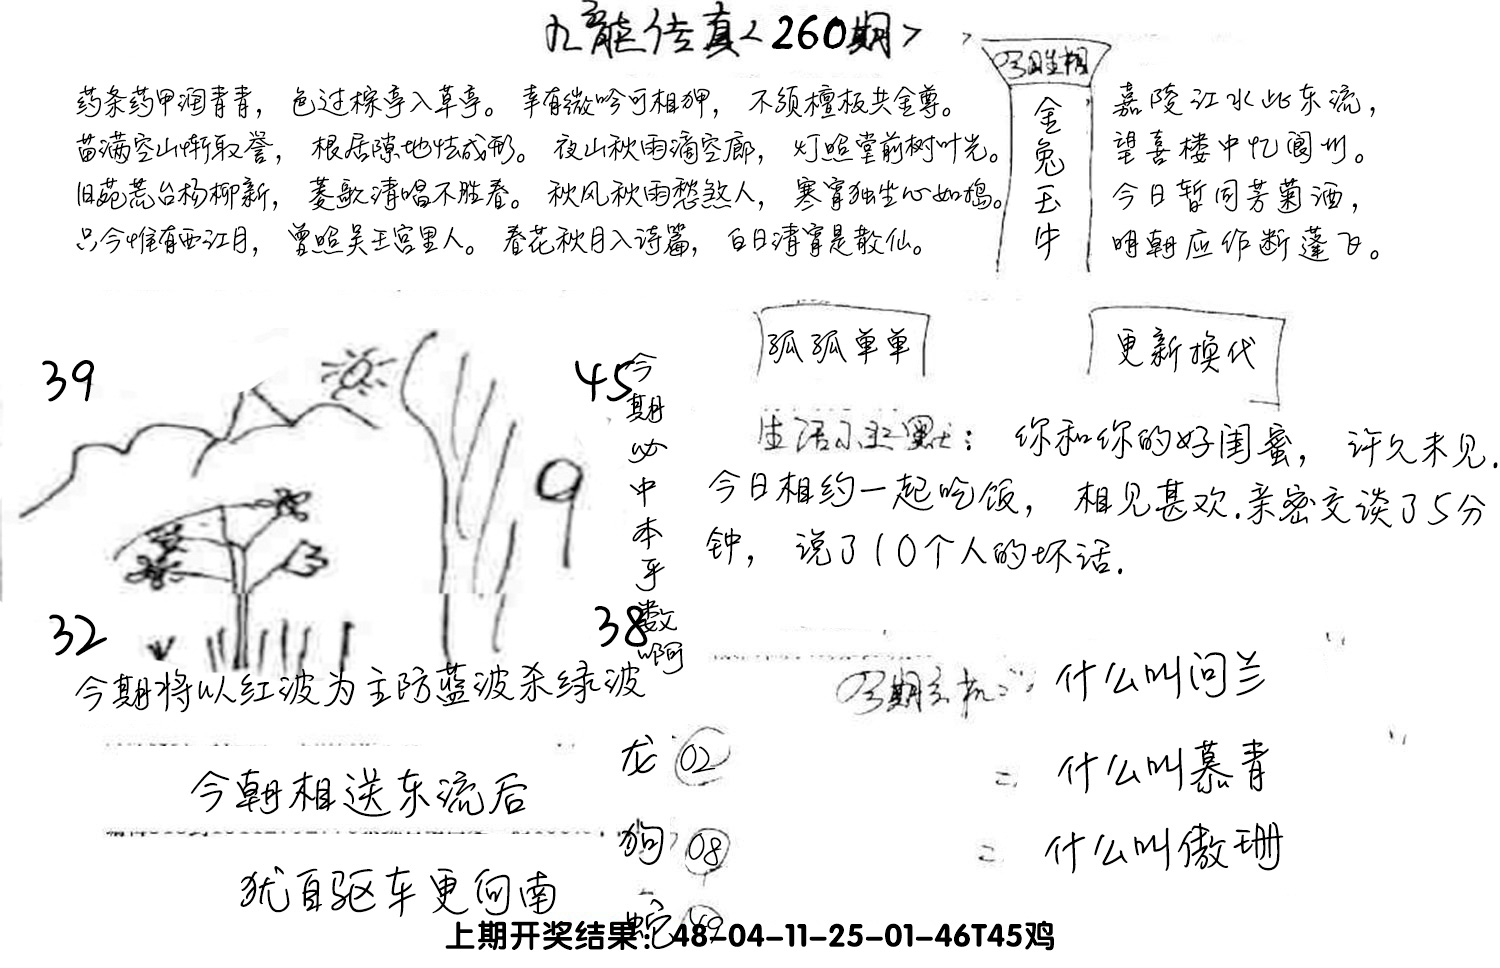 九龍传真<260期>
药条药甲润青青，色过棕亭入草亭。幸有微吟可相狎，不须檀板共金尊。
苗满空山惭取誉，根居隙地怯成形。夜山秋雨滴空廊，灯照堂前树叶光。
旧苑荒台杨柳新，菱歌清唱不胜春。秋风秋雨愁煞人，寒宵独坐心如捣。
只今惟有西江月，曾照吴王宫里人。春花秋月入诗篇，白日清宵是散仙。
金兔玉牛
嘉陵江水此东流，
望喜楼中忆阆州。
今日暂同芳菊酒，
明朝应作断蓬飞。
孤孤单单
更新换代
39
45
9
32
38
今期必中本乎数啊
生活小幽默：你和你的好闺蜜，许久未见.
今日相约一起吃饭，相见甚欢.亲密交谈了5分
钟，说了10个人的坏话.
今期将以红波为主防蓝波杀绿波
今期玄机：什么叫问兰
二 什么叫慕青
二 什么叫傲珊
今朝相送东流后
犹自驱车更向南
龙 02
狗 08
蛇 49
上期开奖结果：48-04-11-25-01-46T45鸡